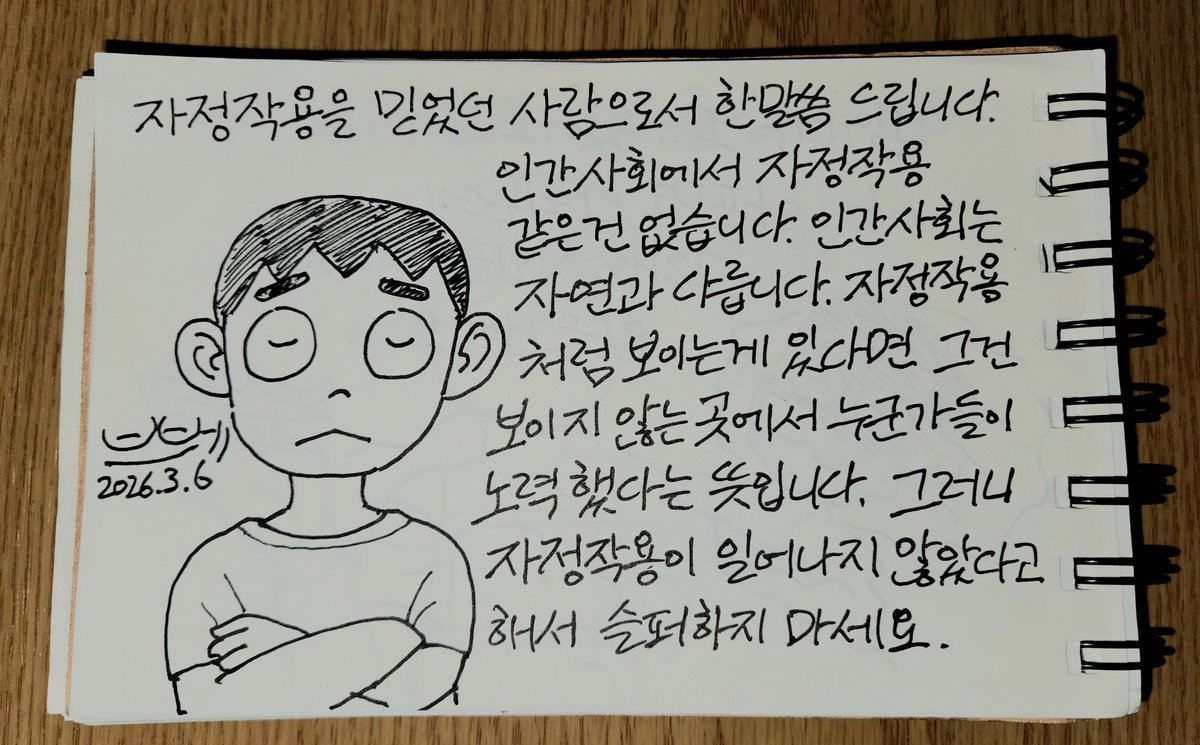 자정작용을 믿었던 사람으로서 한말씀 드립니다.
인간사회에서 자정작용
같은건 없습니다. 인간사회는
자연과 다릅니다. 자정작용
처럼 보이는게 있다면 그건
보이지 않는 곳에서 누군가들이
노력했다는 뜻입니다. 그러니
자정작용이 일어나지 않았다고
해서 슬퍼하지 마세요.
2026.3.6